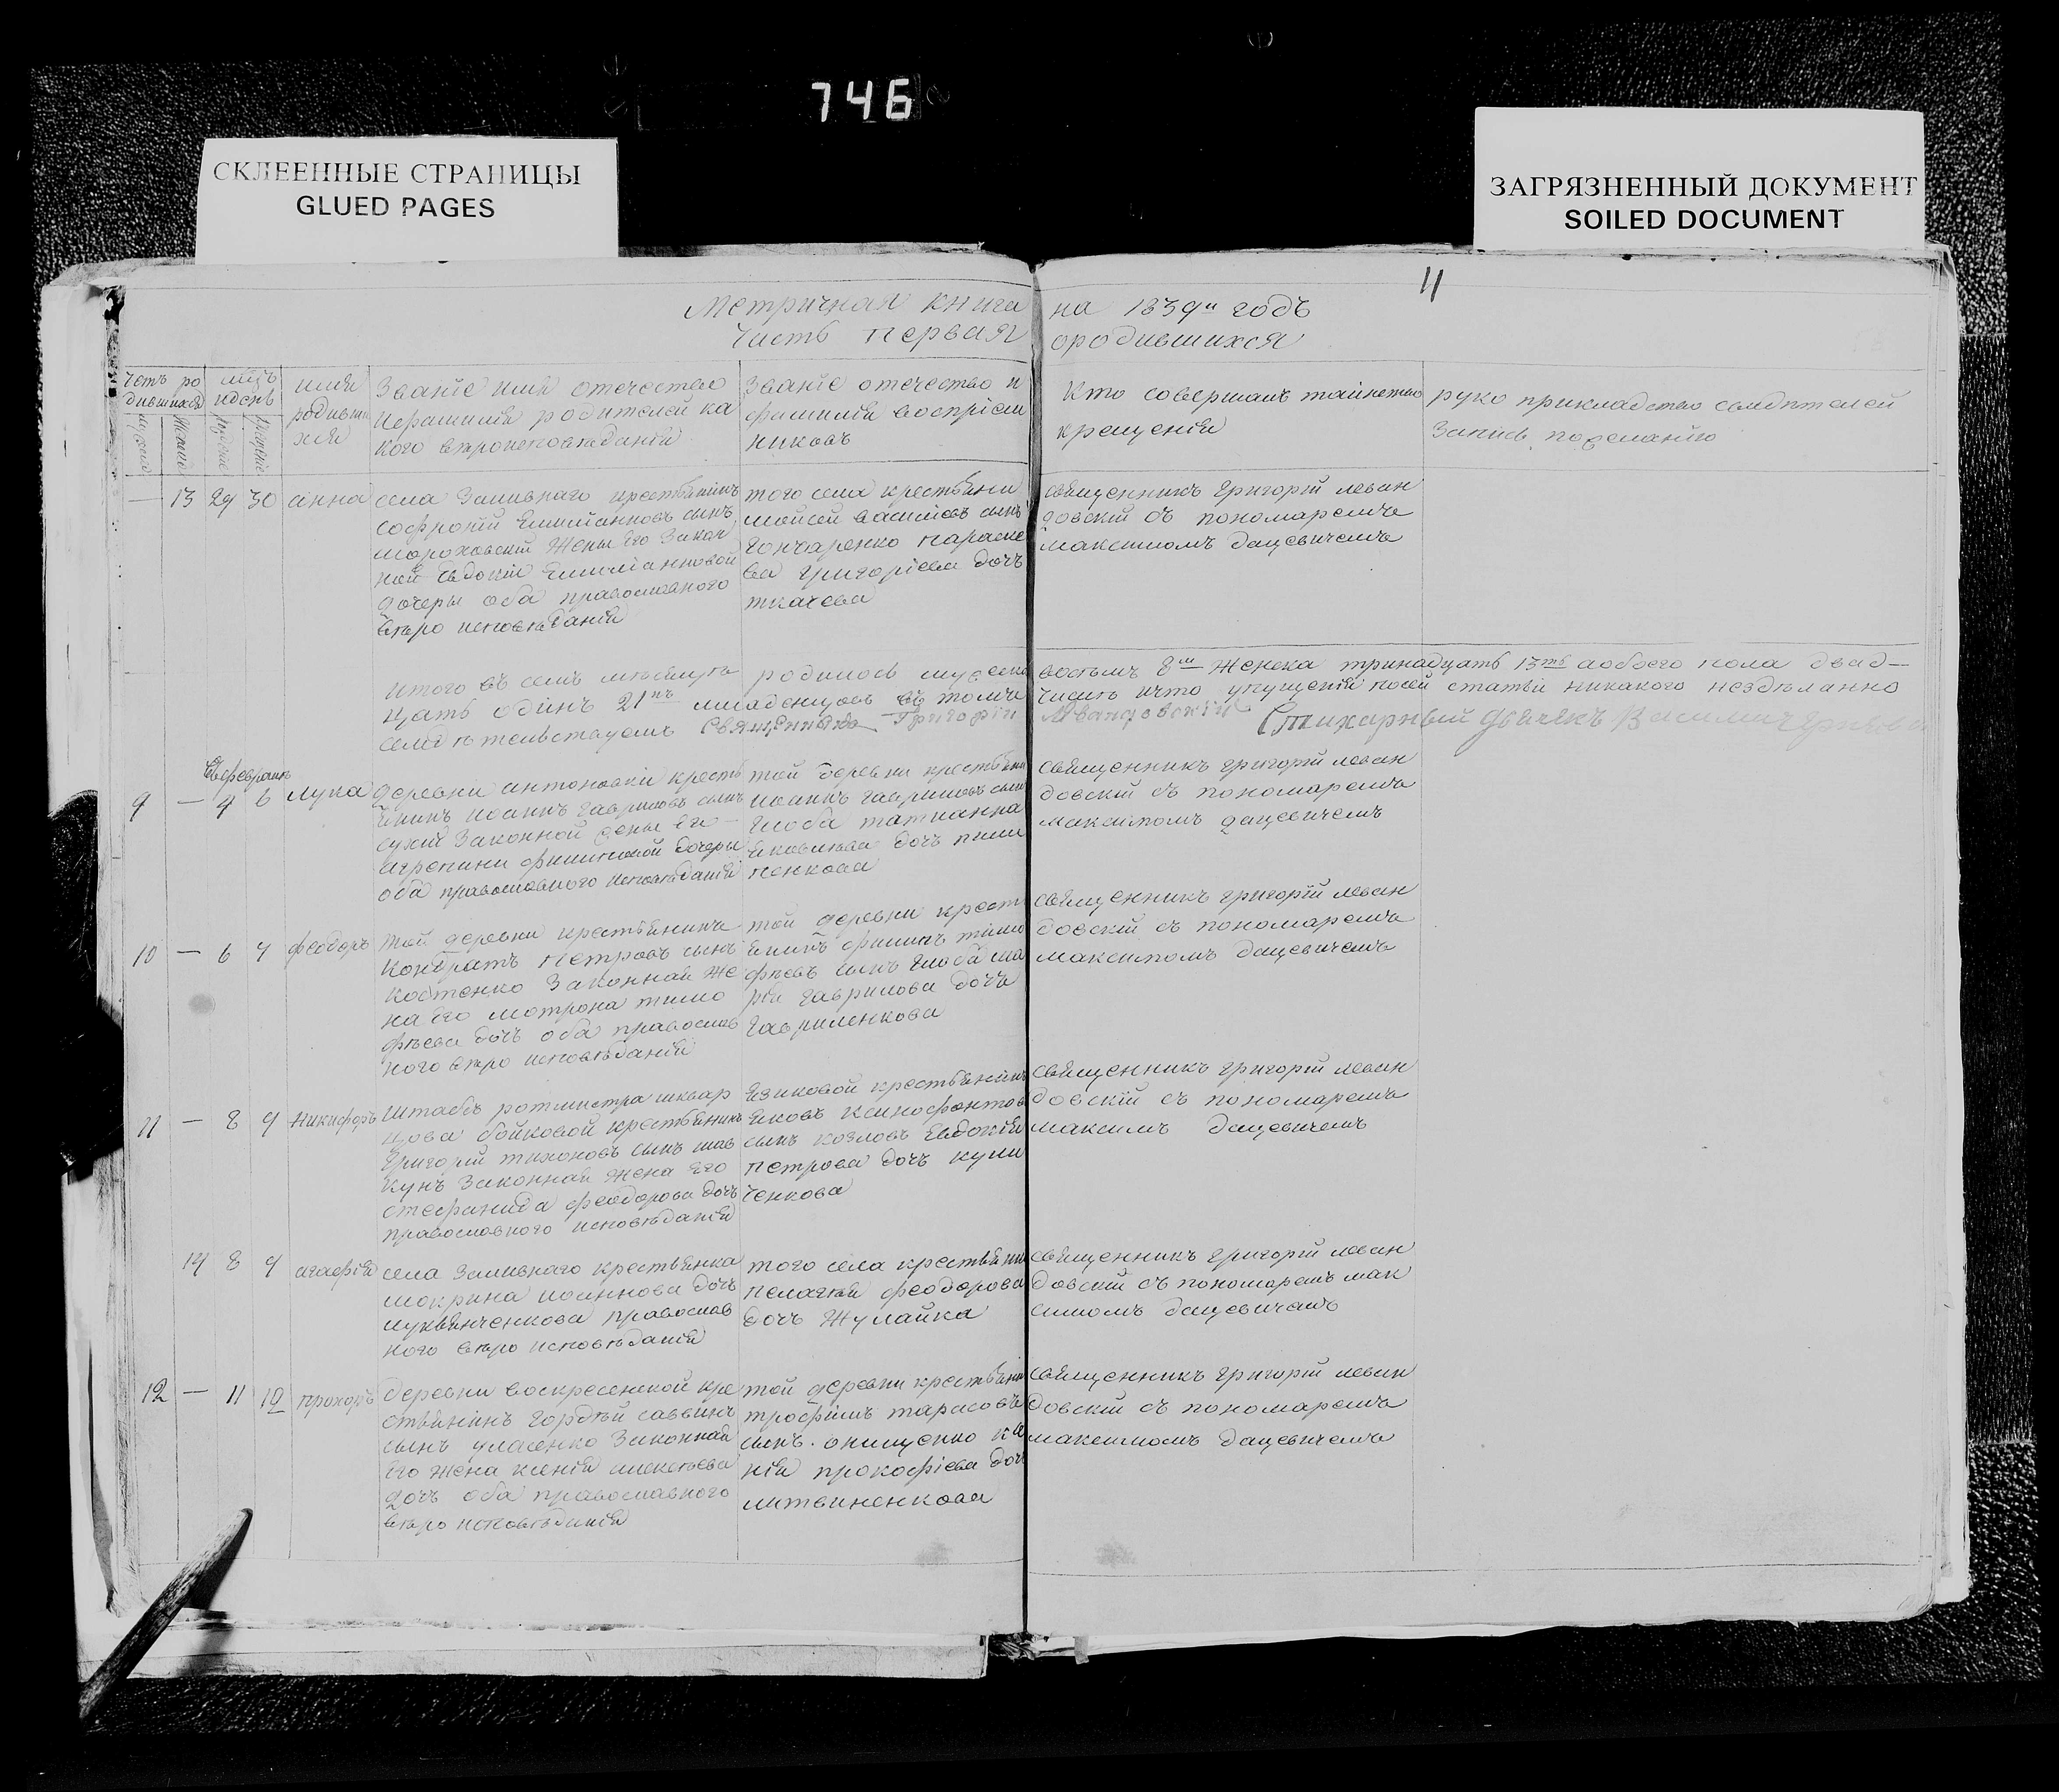 746
СКЛЕЕННЫЕ СТРАНИЦЫ
GLUED PAGES
ЗАГРЯЗНЕННЫЙ ДОКУМЕНТ
SOILED DOCUMENT
11
Метричная книга на 1839й годъ
Часть первая ородившихся
Четъ ро
дившихся
мцъ
идень
имя
родивши
хся
Званіе имя отечество
ифамилія родителей ка
кого вѣроисповѣданія
Званіе отечество и
фамилія воспріем
никовъ
Кто совершалъ таинство
крещенія
руко прикладство свидѣтелей
Запись по желанію
— 13 29 30 анна
села Заливнаго крестьянинъ
софроній Емиліановъ сынъ
мороховскій Жены Его Закон
ной Евдокіи Емиліанновой
дочеры оба православного
вѣро исповѣданія
того села крестьяни
моисей васильевъ сынъ
Гончаренко параске
ва григоріева дочъ
ткачева
священникъ григорій леван
довскій съ пономаремъ
максимомъ дацевичемъ
Итого въ семъ мѣсяцѣ родилось мужеска восьмъ 8м Женска тринадцать 13ть аобоего пола двад—
цать одинъ 21нъ младенцовъ въ томъ числѣ ичто упущенія посей статьи никакого нездѣланно
свидѣтелствуемъ Священникъ Григорій Левандовскій Стихарный дьячекъ Василий
Февраль
9 — 4 6 лука
деревни антоновки кресть
янинъ иоаннъ гавриловъ сынъ
сухій Законной жены Его —
агрепини филиповой дочеры
оба православного исповѣданія
той деревни крестьяни
иоаннъ гавриловъ сынъ
глоба татианна
яковлева дочъ пили
пенкова
священникъ григорій леван
довскій съ пономаремъ
максимомъ дацевичемъ
10 — 6 7 феодоръ
той деревни крестьянинъ
Кондратъ петровъ сынъ
костенко Законная Же
на Его мотрона тимо
фѣева дочъ оба православ
ного вѣро исповѣданія
той деревни кресть
янинъ филипъ тимо
фѣевъ сынъ глоба ма
рія гаврилова дочъ
гавриленкова
священникъ григорій леван
довскій съ пономаремъ
максимомъ дацевичемъ
11 — 8 9 никифоръ
Штабсъ ротмистра шквар
цова бойковой крестьянинъ
Григорій тихоновъ сынъ шав
кунъ Законная жена Его
стефанида феодорова дочъ
православного исповѣданія
Языковой крестьянинъ
Яковъ ксинофонтов
сынъ козловъ Евдокія
петрова дочъ кули
ченкова
священникъ григорій леван
довскій съ пономаремъ
максимъ дацевичемъ
14 8 9 агафія
села Заливнаго крестьянка
мокрина иоаннова дочъ
лукьянченкова православ
ного вѣро исповѣданія
того села крестьяни
пелагія феодорова
дочъ Жулайка
священникъ григорій леван
довскій съ пономаремъ мак
симомъ дацевичамъ
12 — 11 12 прохоръ
деревни воскресенской кре
стьянинъ гордѣй саввинъ
сынъ уласенко Законная
Его жена ксенія алексѣева
дочъ оба православного
вѣро исповѣданія
той деревни крестьянин
трофимъ тарасовъ
сынъ онищенко ксе
нія прокофіева доч
литвиненкова
священникъ григорій леван
довскій съ пономаремъ
максимомъ дацевичемъ